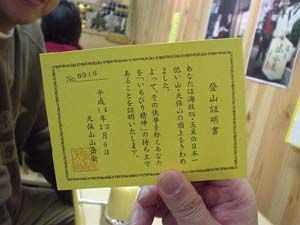 登山証明書
あなたは海抜四・五米の日本一
低い山・天保山の頂上をきわめ
ました。
よって、その快挙を称えあなた
を「いちびり精神」の持ち主で
あることを証明いたします。
平成14年12月6日
天保山山岳会
No.